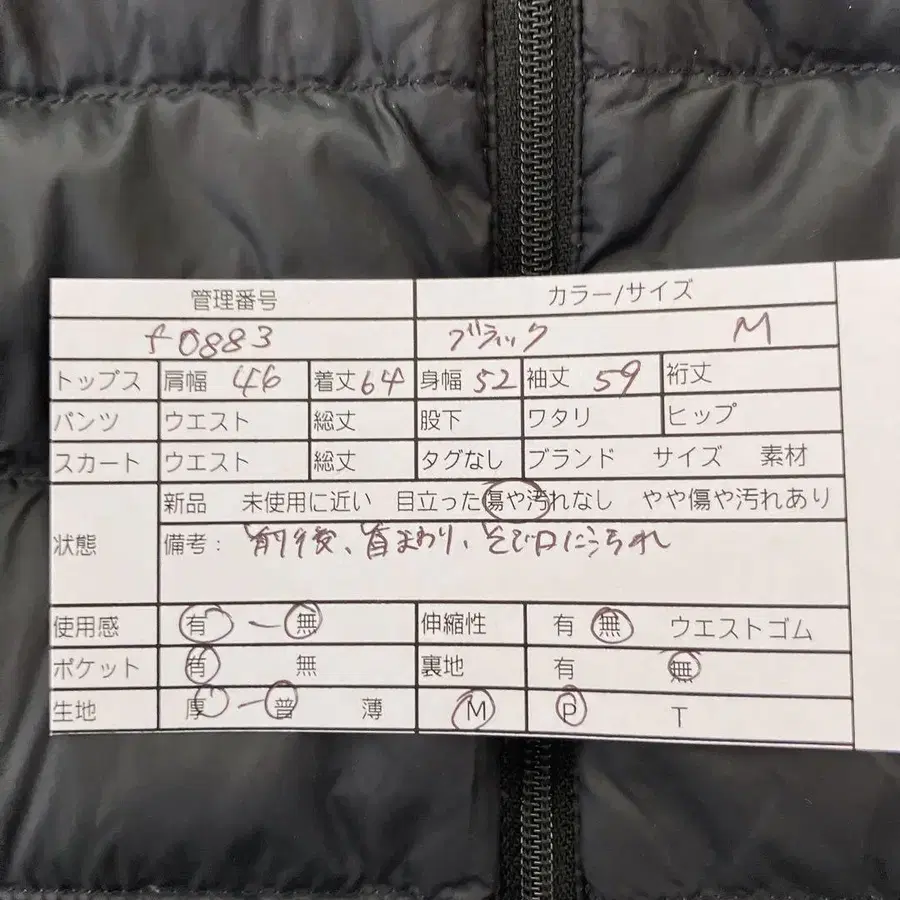 管理番号 カラー/サイズ
f0883 ブラック M
トップス 肩幅 46 着丈 64 身幅 52 袖丈 59 裄丈
パンツ ウエスト 総丈 股下 ワタリ ヒップ
スカート ウエスト 総丈 タグなし ブランド サイズ 素材
新品 未使用に近い 目立った傷や汚れなし やや傷や汚れあり
状態 備考: 前後、首まわり、そで口に汚れ
使用感 有 ー 無 伸縮性 有 無 ウエストゴム
ポケット 有 無 裏地 有 無
生地 厚 ー 普 薄 M P T